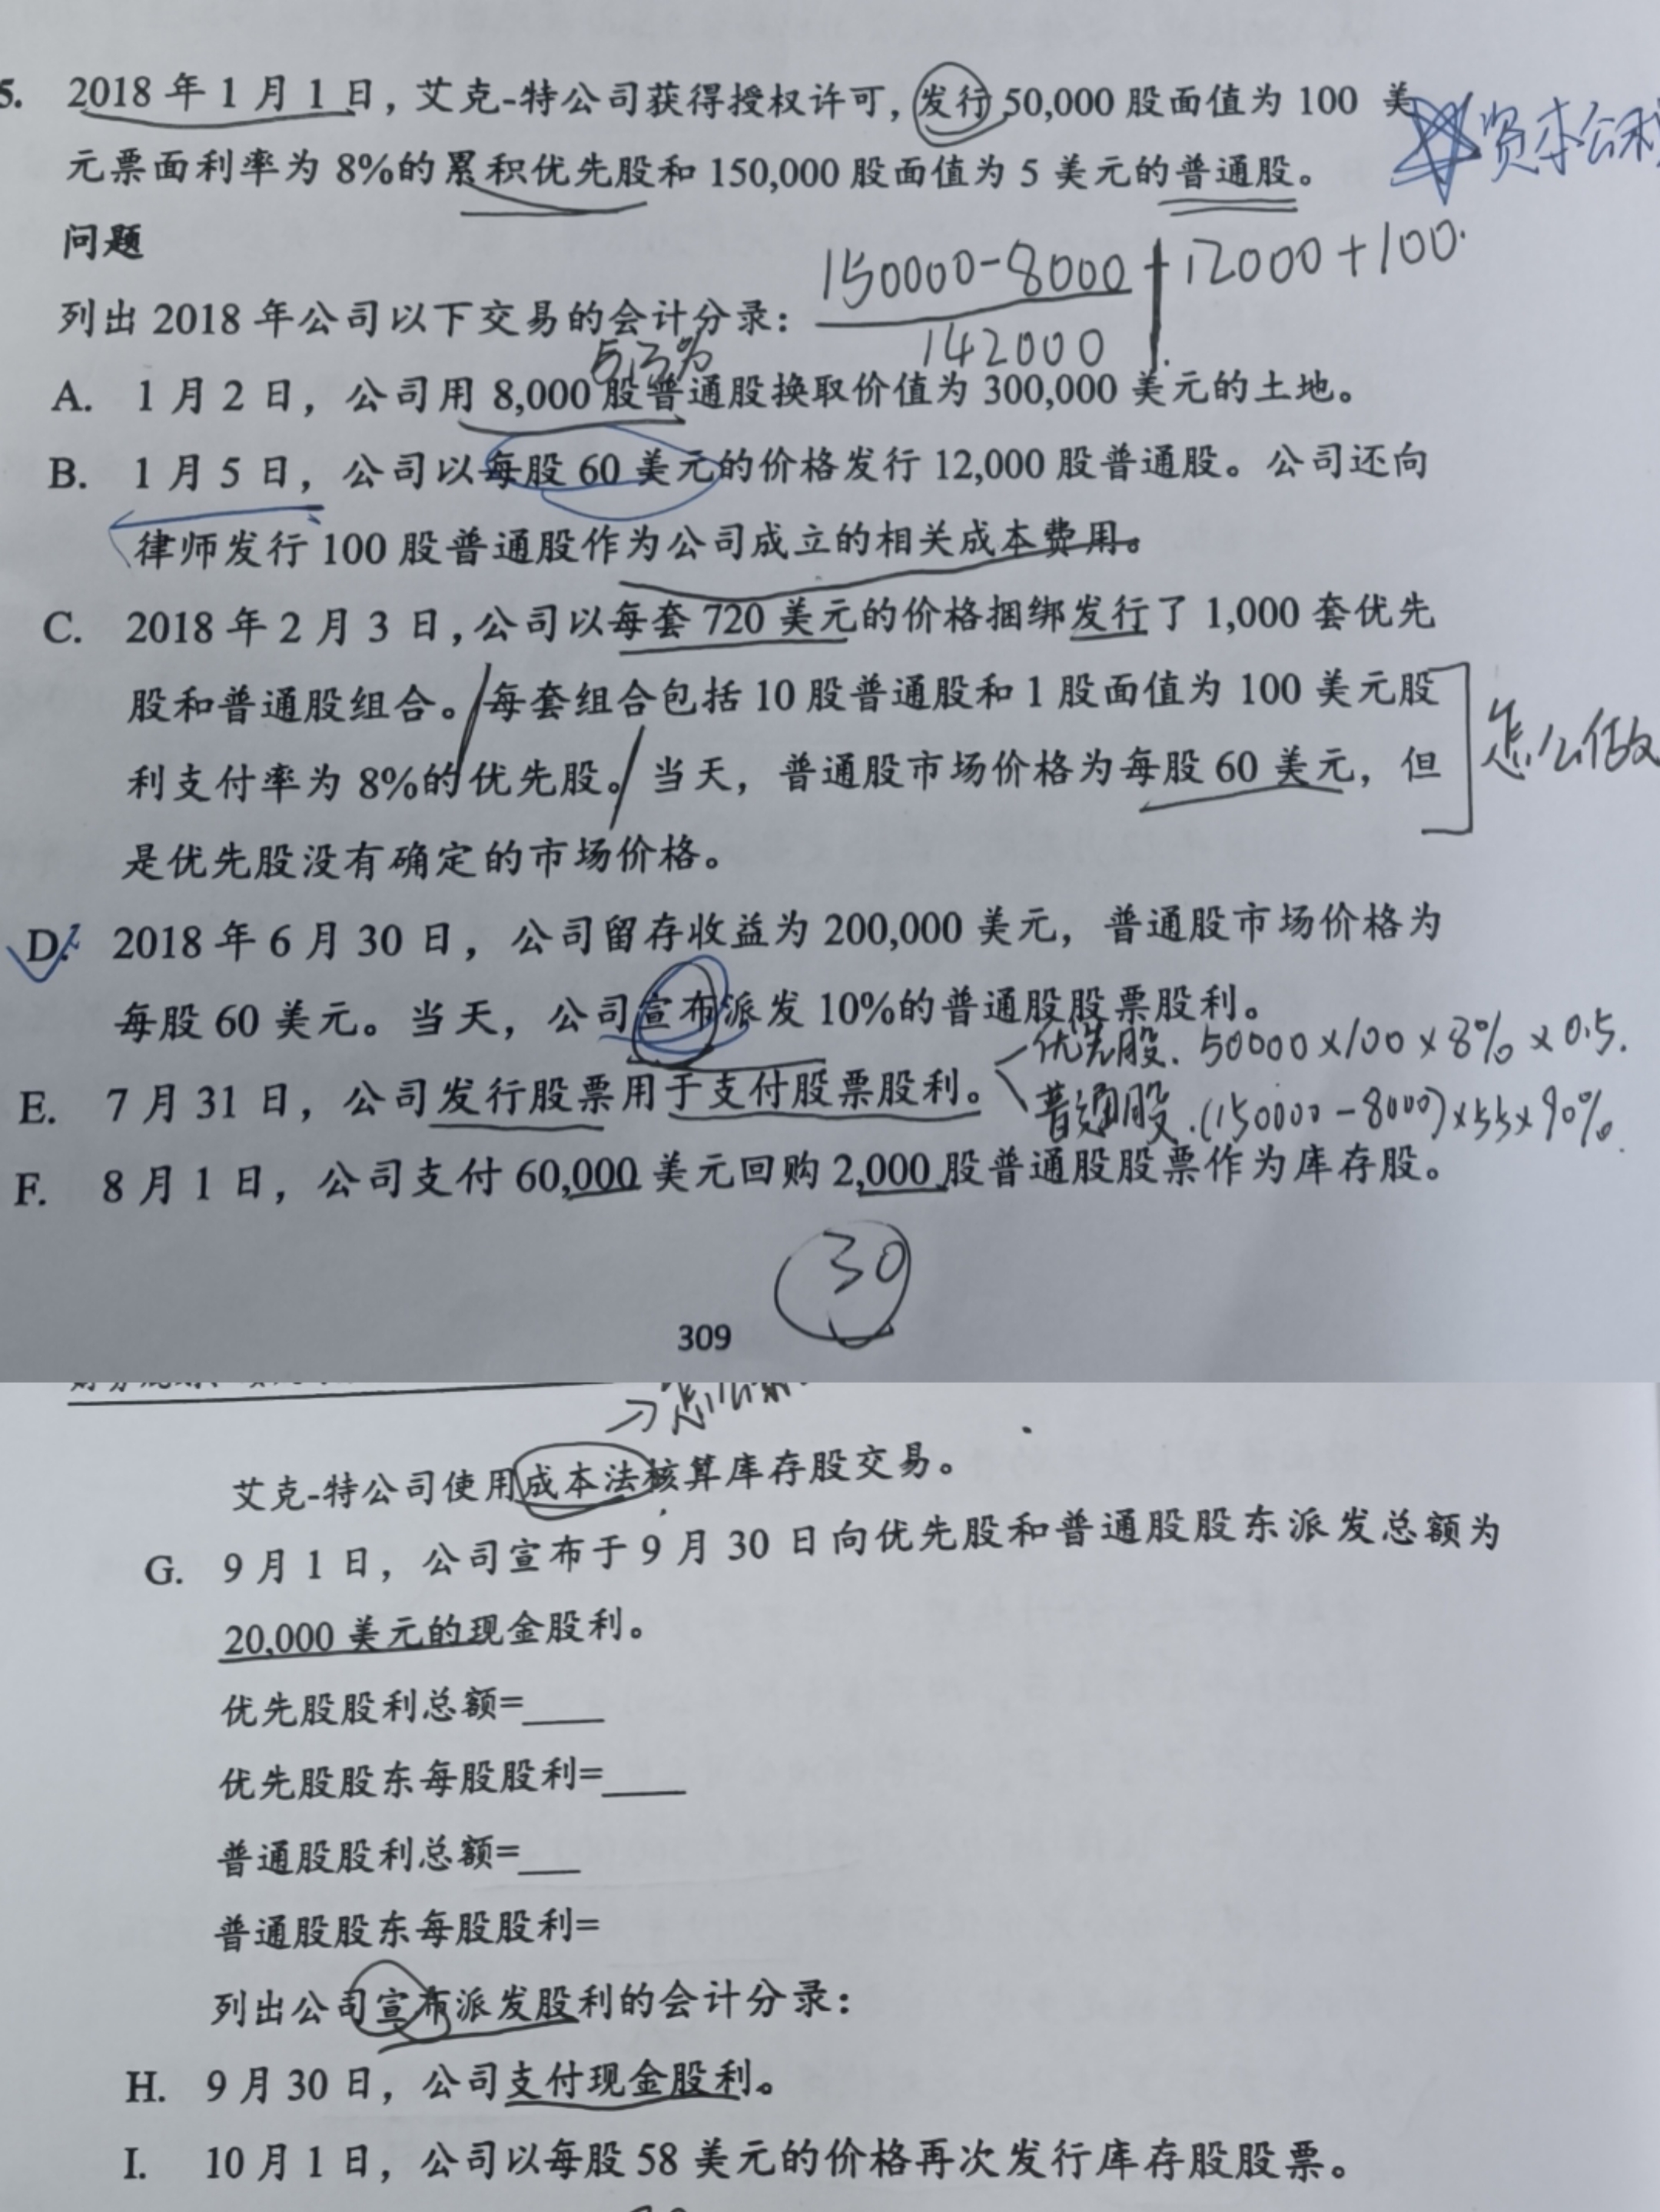 5. 2018 年 1 月 1 日，艾克-特公司获得授权许可，发行 50,000 股面值为 100 美
元票面利率为 8%的累积优先股和 150,000 股面值为 5 美元的普通股。
资本公积
问题
150000-8000+12000+100.
列出 2018 年公司以下交易的会计分录：
142000
5.3%
A. 1 月 2 日，公司用 8,000 股普通股换取价值为 300,000 美元的土地。
B. 1 月 5 日，公司以每股 60 美元的价格发行 12,000 股普通股。公司还向
律师发行 100 股普通股作为公司成立的相关成本费用。
C. 2018 年 2 月 3 日，公司以每套 720 美元的价格捆绑发行了 1,000 套优先
股和普通股组合。每套组合包括 10 股普通股和 1 股面值为 100 美元股
利支付率为 8%的优先股。当天，普通股市场价格为每股 60 美元，但
怎么做
是优先股没有确定的市场价格。
D. 2018 年 6 月 30 日，公司留存收益为 200,000 美元，普通股市场价格为
每股 60 美元。当天，公司宣布派发 10%的普通股股票股利。
优先股. 50000×100×8%×0.5.
E. 7 月 31 日，公司发行股票用于支付股票股利。
普通股.(150000-8000)×55×90%.
F. 8 月 1 日，公司支付 60,000 美元回购 2,000 股普通股股票作为库存股。
30
309
艾克-特公司使用成本法核算库存股交易。
G. 9 月 1 日，公司宣布于 9 月 30 日向优先股和普通股股东派发总额为
20,000 美元的现金股利。
优先股股利总额=____
优先股股东每股股利=____
普通股股利总额=___
普通股股东每股股利=
列出公司宣布派发股利的会计分录：
H. 9 月 30 日，公司支付现金股利。
I. 10 月 1 日，公司以每股 58 美元的价格再次发行库存股股票。